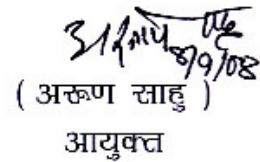 8/9/08
( अरूण साहु )
आयुक्त